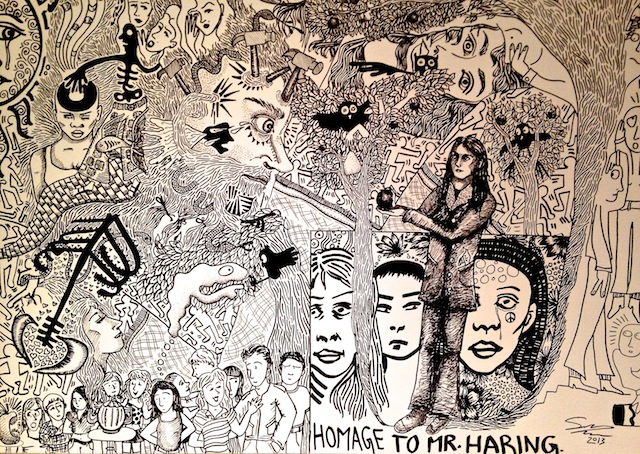 HOMAGE TO MR. HARING.
2013